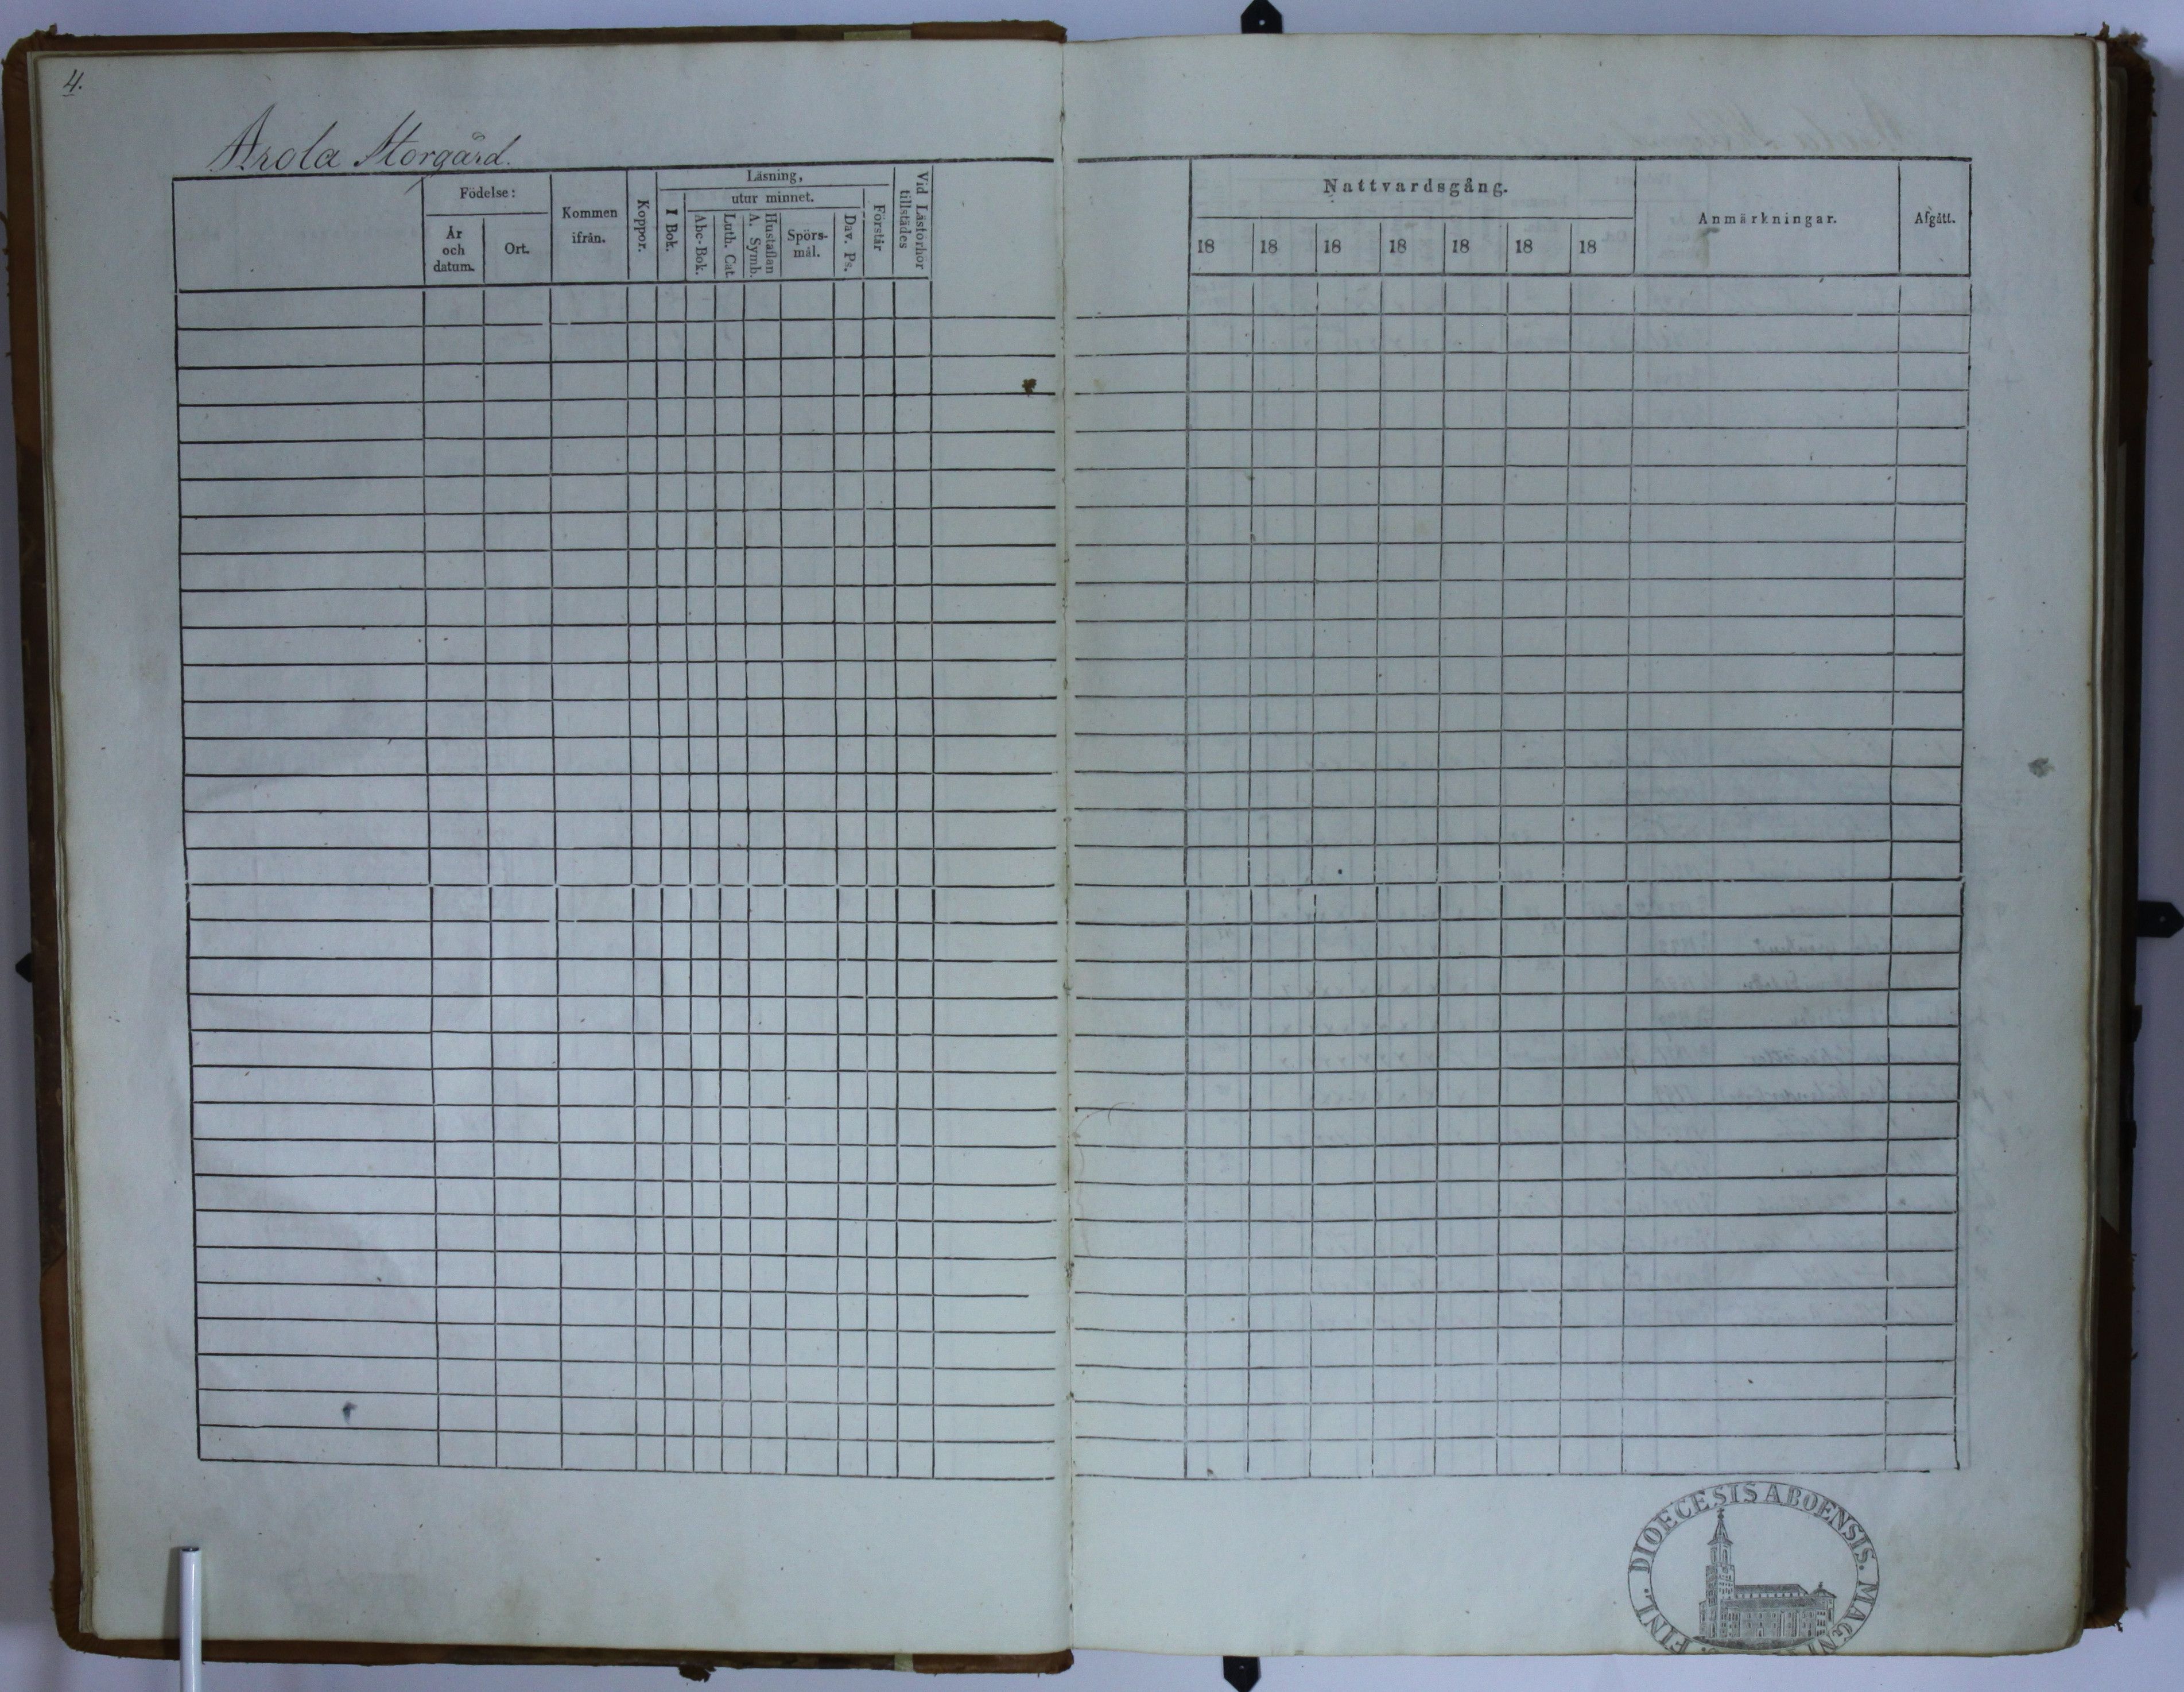 4.
Arola Storgård.
Födelse:
År och datum.
Ort.
Kommen ifrån.
Koppor.
Läsning,
I Bok.
utur minnet.
Abc-Bok.
Luth. Cat.
Hustaflan
A. Symb.
Spörs-
mål.
Dav. Ps.
Förstår
Vid Läsförhör
tillstädes
Nattvardsgång.
18 18 18 18 18 18 18
Anmärkningar.
Afgått.
FINL. DIOECESIS ABOENSIS. MAGNI